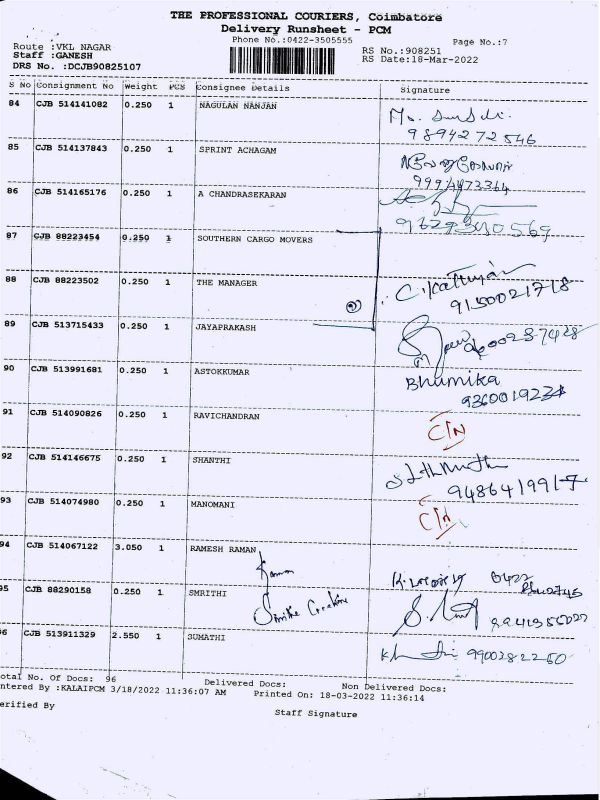 THE PROFESSIONAL COURIERS, Coimbatore
Delivery Runsheet - PCM
Phone No.:0422-3505555
Page No.:7
Route :VKL NAGAR
RS No.:908251
Staff :GANESH
RS Date:18-Mar-2022
DRS No. :DCJB90825107
S No Consignment No Weight PCS Consignee Details Signature
84 CJB 514141082 0.250 1 NAGULAN NANJAN
9894272546
85 CJB 514137843 0.250 1 SPRINT ACHAGAM
86 CJB 514165176 0.250 1 A CHANDRASEKARAN
87 CJB 88223454 0.250 1 SOUTHERN CARGO MOVERS
88 CJB 88223502 0.250 1 THE MANAGER
9150021718
89 CJB 513715433 0.250 1 JAYAPRAKASH
90 CJB 513991681 0.250 1 ASTOKKUMAR Bhumika
91 CJB 514090826 0.250 1 RAVICHANDRAN C/N
92 CJB 514146675 0.250 1 SHANTHI
9486419917
93 CJB 514074980 0.250 1 MANOMANI C/N
94 CJB 514067122 3.050 1 RAMESH RAMAN
95 CJB 88290158 0.250 1 SMRITHI
96 CJB 513911329 2.550 1 SUMATHI
9900282260
otal No. Of Docs: 96 Delivered Docs: Non Delivered Docs:
ntered By :KALAIPCM 3/18/2022 11:36:07 AM Printed On: 18-03-2022 11:36:14
erified By Staff Signature